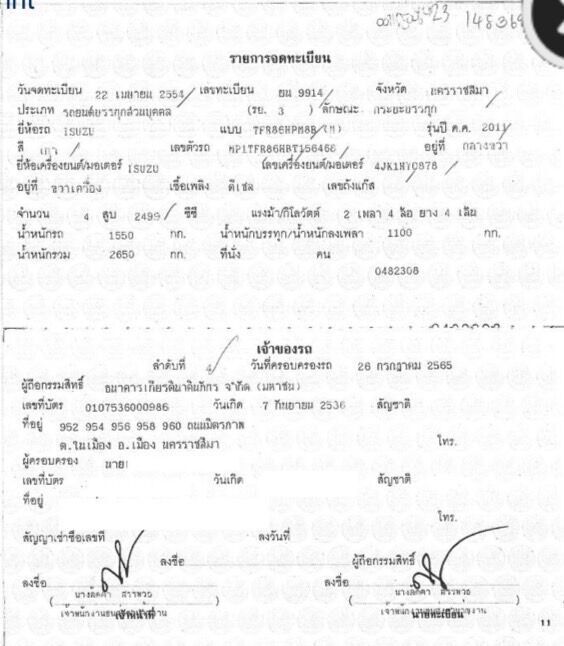 int
148369
รายการจดทะเบียน
วันจดทะเบียน 22 เมษายน 2554 เลขทะเบียน ยน 9914 จังหวัด นครราชสีมา
ประเภท รถยนต์บรรทุกส่วนบุคคล (รย. 3 ) ลักษณะ กระบะบรรทุก
ยี่ห้อรถ ISUZU แบบ TFR86HPM8B (M) รุ่นปี ค.ศ. 2011
สี เทา เลขตัวรถ MP1TFR86HBT156468 อยู่ที่ กลางขวา
ยี่ห้อเครื่องยนต์/มอเตอร์ ISUZU เลขเครื่องยนต์/มอเตอร์ 4JK1NYC878
อยู่ที่ ขวาเครื่อง เชื้อเพลิง ดีเซล เลขถังแก๊ส
จำนวน 4 สูบ 2499 ซีซี แรงม้า/กิโลวัตต์ 2 เพลา 4 ล้อ ยาง 4 เส้น
น้ำหนักรถ 1550 กก. น้ำหนักบรรทุก/น้ำหนักลงเพลา 1100 กก.
น้ำหนักรวม 2650 กก. ที่นั่ง คน
0482308
เจ้าของรถ
ลำดับที่ 4 วันที่ครอบครองรถ 26 กรกฎาคม 2565
ผู้ถือกรรมสิทธิ์ ธนาคารเกียรตินาคินภัทร จำกัด (มหาชน)
เลขที่บัตร 0107536000986 วันเกิด 7 กันยายน 2536 สัญชาติ
ที่อยู่ 952 954 956 958 960 ถนนมิตรภาพ
ต.ในเมือง อ.เมือง นครราชสีมา โทร.
ผู้ครอบครอง นาย
เลขที่บัตร วันเกิด สัญชาติ
ที่อยู่
โทร.
สัญญาเช่าซื้อเลขที่ ลงวันที่
ลงชื่อ ผู้ถือกรรมสิทธิ์
ลงชื่อ ลงชื่อ
เจ้าหน้าที่ นายทะเบียน
11